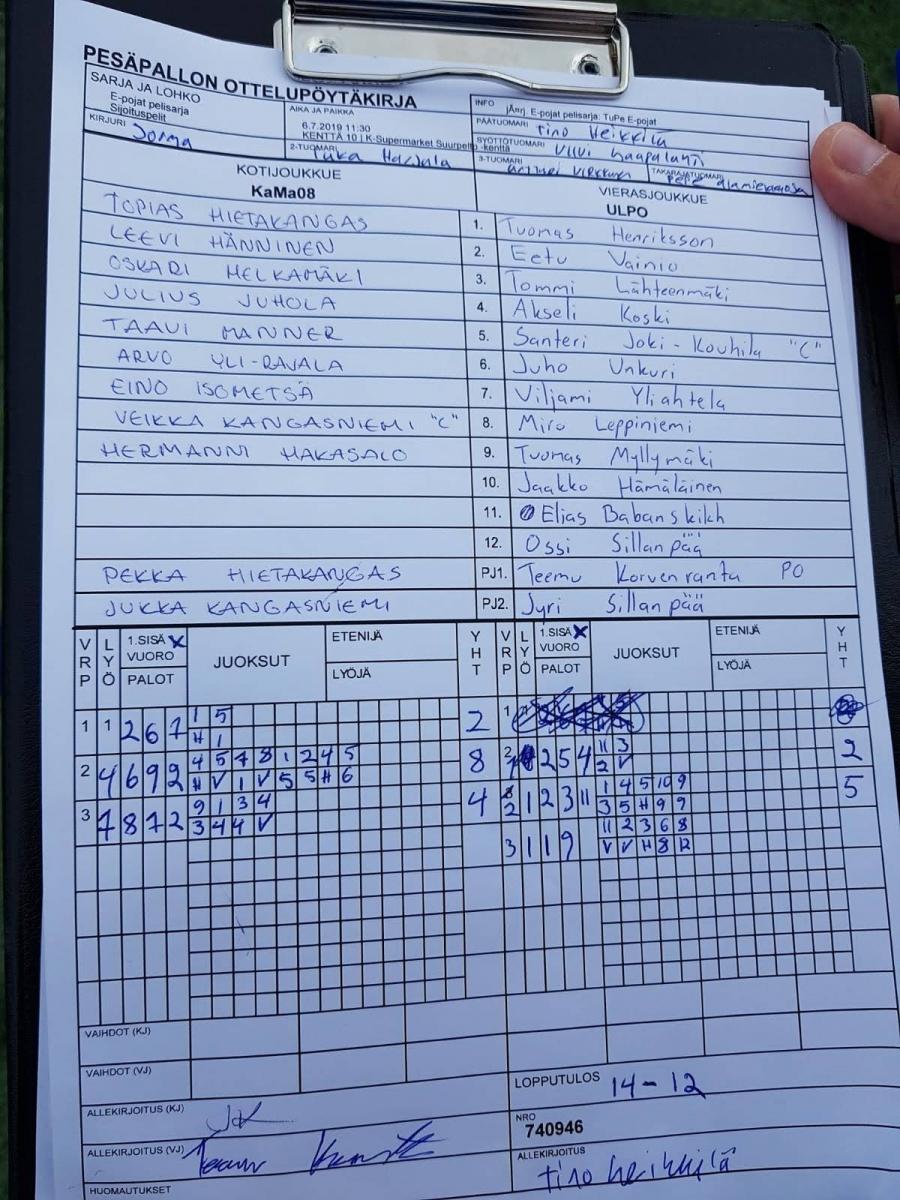 PESÄPALLON OTTELUPÖYTÄKIRJA
SARJA JA LOHKO
E-pojat pelisarja
Sijoituspelit
AIKA JA PAIKKA
6.7.2019 11:30
KENTTÄ 10 | K-Supermarket Suurpelto -kenttä
INFO
jÄnrj. E-pojat pelisarja: TuPe E-pojat
KIRJURI Jorma
2-TUOMARI Tuka Harjula
PÄÄTUOMARI Tino Heikkilä
SYÖTTÖTUOMARI Vilvi Haapalahti
3-TUOMARI
TAKARAJATUOMARI
KOTIJOUKKUE
KaMa08
VIERASJOUKKUE
ULPO
TOPIAS HIETAKANGAS 1. Tuomas Henriksson
LEEVI HÄNNINEN 2. Eetu Vainio
OSKARI HELKAMÄKI 3. Tommi Lähteenmäki
JULIUS JUHOLA 4. Akseli Koski
TAAVI MANNER 5. Santeri Joki-Kouhila "C"
ARVO YLI-RAJALA 6. Juho Unkuri
EINO ISOMETSÄ 7. Viljami Yliahtela
VEIKKA KANGASNIEMI "C" 8. Miro Leppiniemi
HERMANNI HAKASALO 9. Tuomas Myllymäki
10. Jaakko Hämäläinen
11. Elias Babanskikh
12. Ossi Sillanpää
PEKKA HIETAKANGAS PJ1. Teemu Korvenranta PO
JUKKA KANGASNIEMI PJ2. Jyri Sillanpää
VRP LYÖ 1.SISÄ X VUORO PALOT JUOKSUT ETENIJÄ LYÖJÄ YHT VRP LYÖ 1.SISÄ X VUORO PALOT JUOKSUT ETENIJÄ LYÖJÄ YHT
1 1 2 6 7 1 5 2 1
H 1
2 4 6 9 2 4 5 7 8 1 2 4 5 8 2 2 5 4 11 3 2
H V 1 V 5 5 H 6 2 V
3 7 8 7 2 9 1 3 4 4 2 1 2 3 11 1 4 5 10 9 5
3 4 4 V 3 5 H 9 9
3 1 1 9 11 2 3 6 8
V V H 8 12
VAIHDOT (KJ)
VAIHDOT (VJ)
LOPPUTULOS 14-12
ALLEKIRJOITUS (KJ) JK
NRO
740946
ALLEKIRJOITUS (VJ)
ALLEKIRJOITUS
Tino Heikkilä
HUOMAUTUKSET